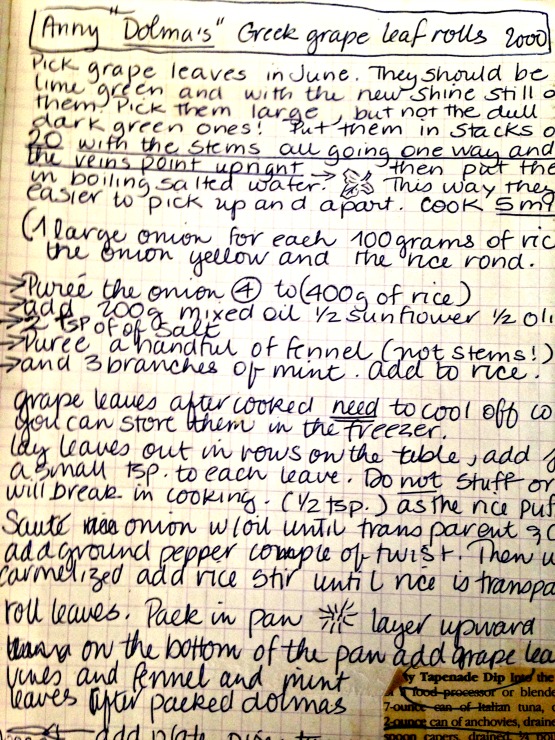 Anny "Dolma's" Greek grape leaf rolls 2000
Pick grape leaves in June. They should be
lime green and with the new shine still o
them. Pick them large, but not the dull
dark green ones! Put them in stacks o
20 with the stems all going one way and
the veins point upright → then put the
in boiling salted water. This way they
easier to pick up and apart. COOK 5 m
(1 large onion for each 100 grams of ric
the onion yellow and the rice rond.
→ Pureé the onion ④ to (400g of rice)
→ add 200g mixed oil ½ sunflower ½ oli
→ 2 tsp of of salt
→ Puree a handful of fennel (not stems!)
→ and 3 branches of mint. add to rice.
grape leaves after cooked need to cool off co
you can store them in the freezer.
lay leaves out in rows on the table, add
a small tsp. to each leave. Do not stuff or
will break in cooking. (½ tsp.) as the rice puf
Sauté onion w/oil until transparent
add ground pepper couple of twist. Then
carmelized add rice stir until rice is transpa
roll leaves. Pack in pan layer upward
on the bottom of the pan add grape lea
vines and fennel and mint
leaves after packed dolmas
add plate
ty Tapenade Dip Into the
food processor or blende
7-ounce can of Italian tuna,
2-ounce can of anchovies, draine
spoon capers, drained, ¼